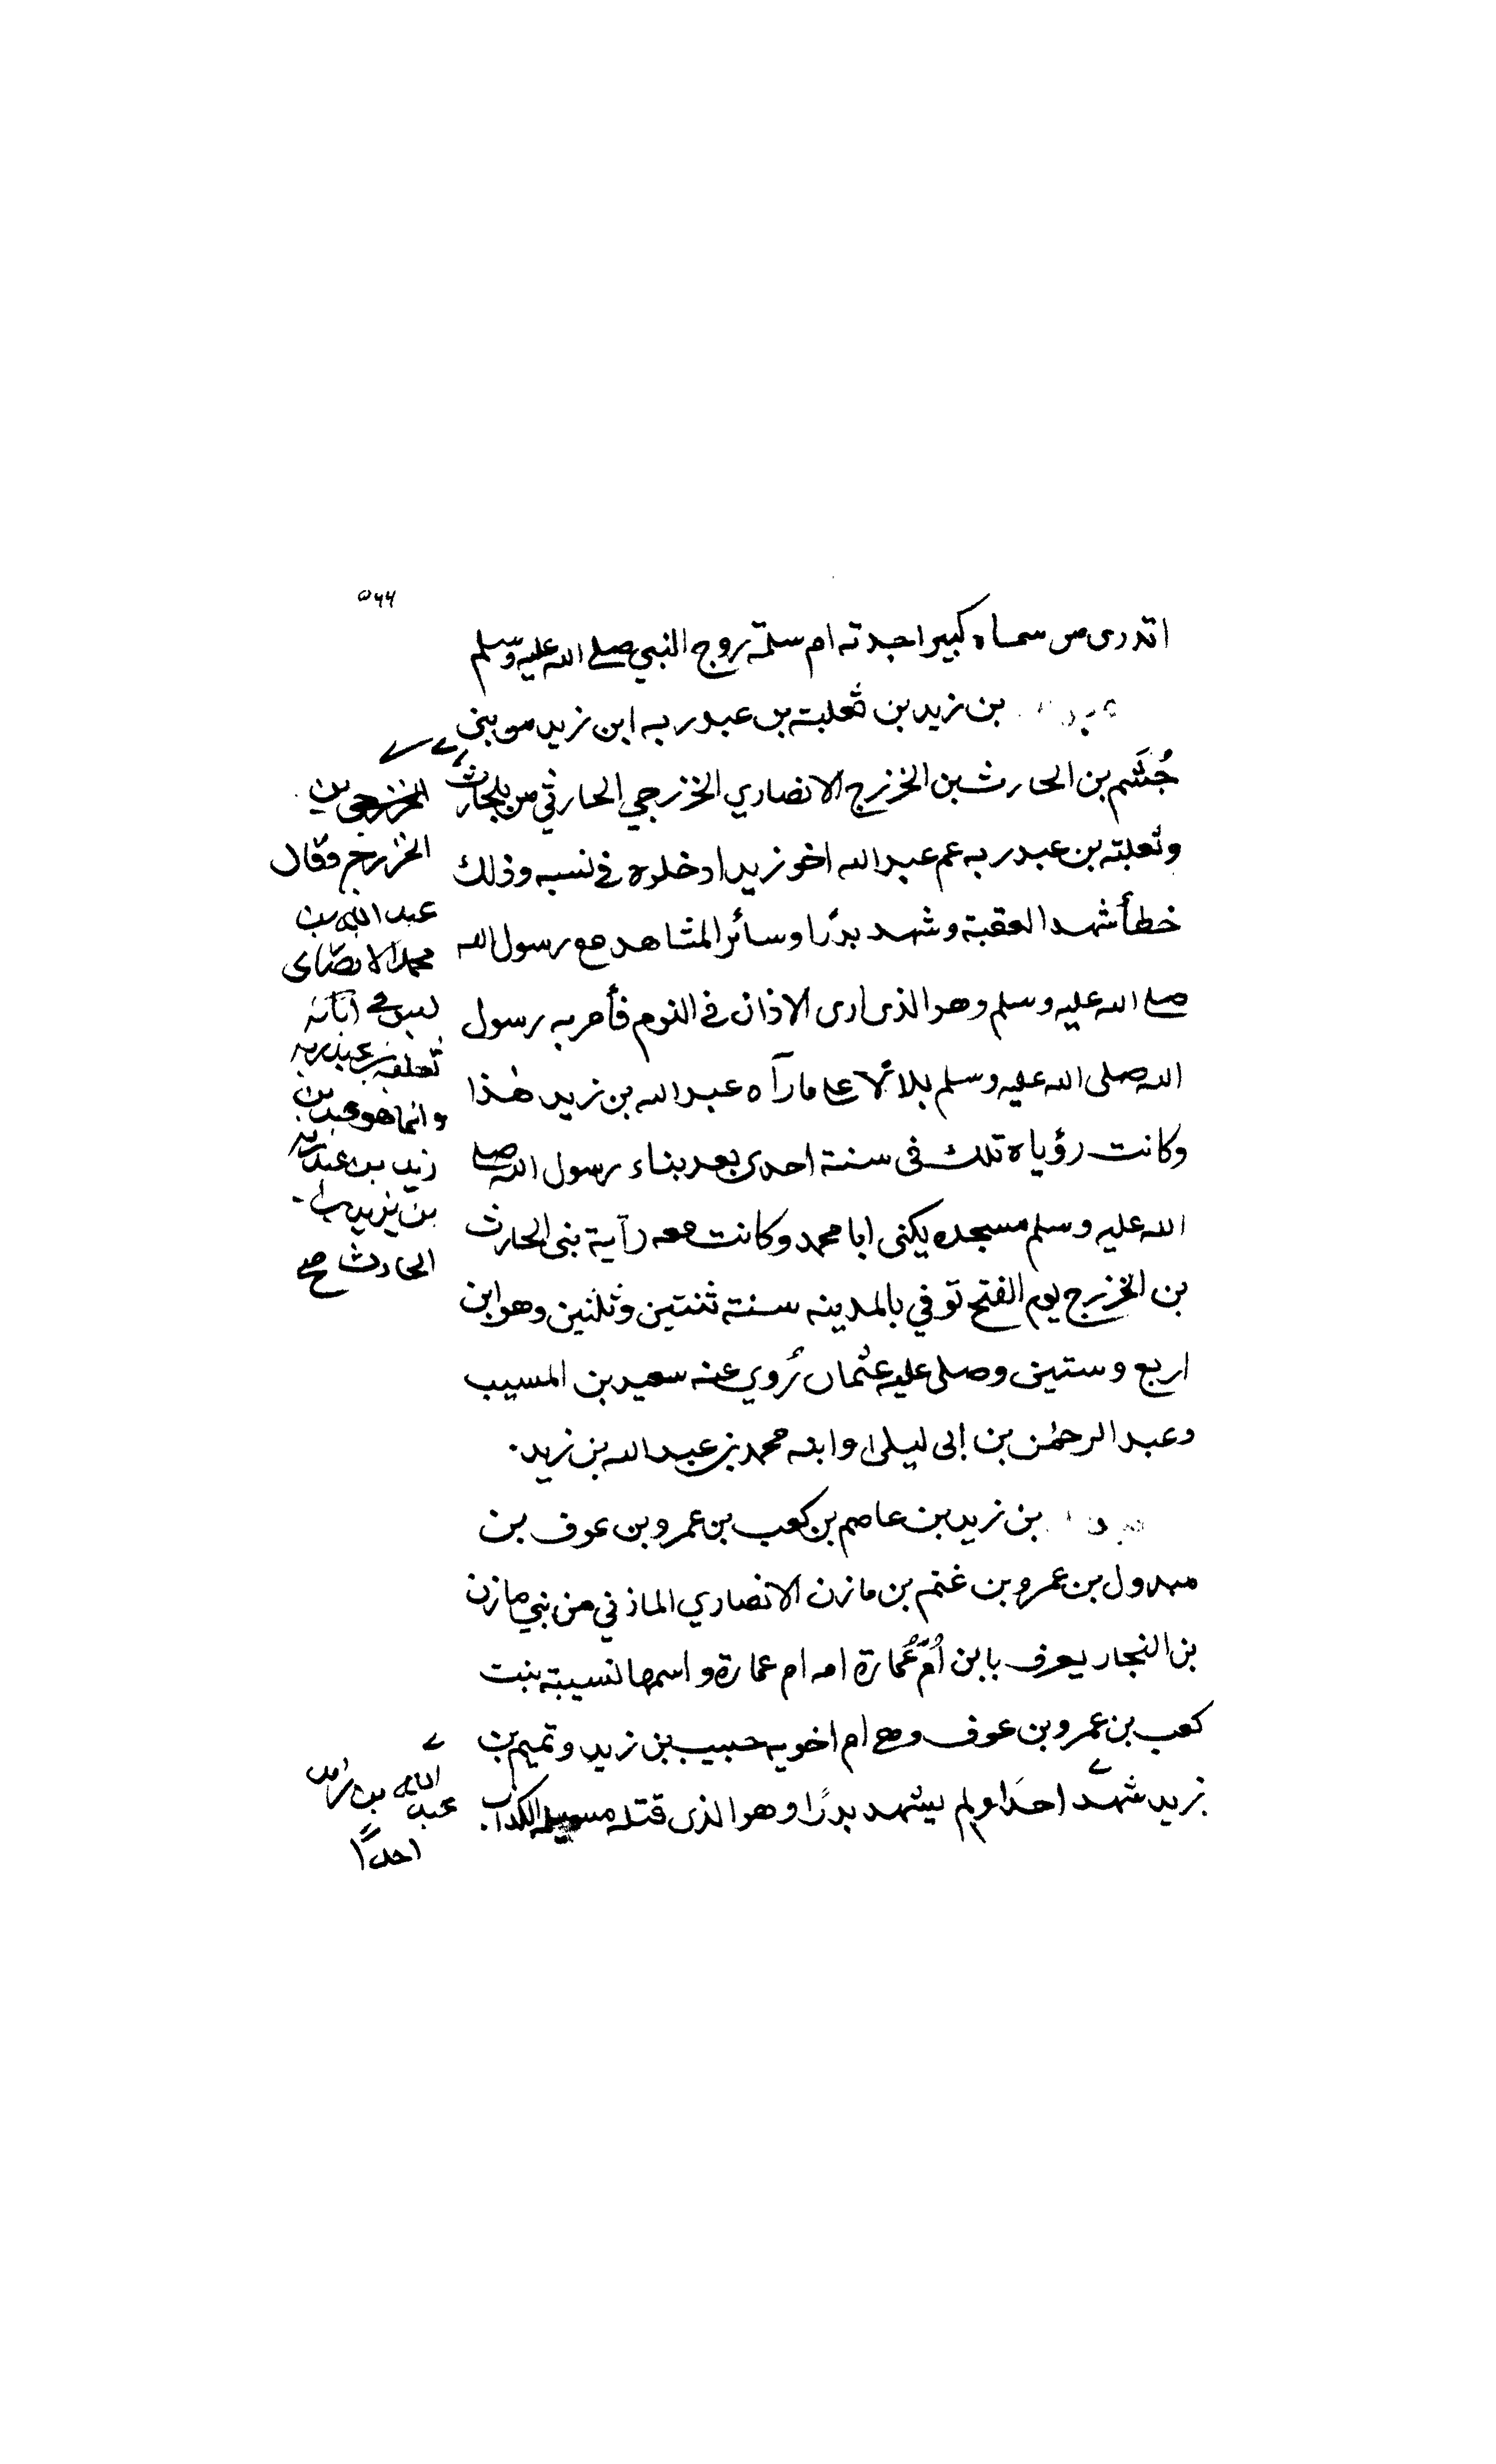 ٥٦٦
اتدرى من سماه كبيرا جدته ام سلمة زوج النبي صلى الله عليه وسلم
بن زيد بن ثعلبة بن عبد ربه ابن زيد من بنى
جُشَم بن الحارث بن الخزرج الانصاري الخزرجي الحارثي من بلحارث
وثعلبة بن عبد ربه عم عبد الله اخو زيد ادخلوه في نسبه وذلك
خطأ شهد العقبة وشهد بدرًا وسائر المشاهد مع رسول الله
صلى الله عليه وسلم وهو الذى ارى الاذان في النوم فأمر به رسول
الله صلى الله عليه وسلم بلالا على ما رآه عبد الله بن زيد هذا
وكانت رؤياه تلك فى سنة احدى بعد بناء رسول الله صلى
الله عليه وسلم مسجده يكنى ابا محمد وكانت معه رآية بنى الحارث
بن الخزرج يوم الفتح توفي بالمدينه سنة ثنتين وثلثين وهو ابن
اربع وستين وصلى عليه عثمان رُوي عنه سعيد بن المسيب
وعبد الرحمن بن ابى ليلى وابنه محمد بن عبد الله بن زيد.
بن زيد بن عاصم بن كعب بن عمرو بن عوف بن
مبدول بن عمرو بن غنم بن مازن الانصاري الماذني من بني مازن
بن النجار يعرف بابن اُمّ عُمارة امه ام عمارة واسمها نسيبة بنت
كعب بن عمرو بن عوف وهى ام اخويه حبيب بن زيد وتميم بن
زيد شهد احدا ولم يشهد بدرًا وهو الذى قتل مسيلمة الكذاب.
بن
الخزرج وقال
عبد الله بن
محمد الانصارى
ليس فى آبائه
ثعلبة بن عبد ربه
وانما هو عبد بن
زيد بن عبد ربه
بن زيد بن
الحارث صح
عبد الله بن زيد
احدًا